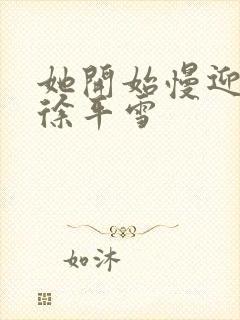 她開始慢迎
徐平雪
如沐